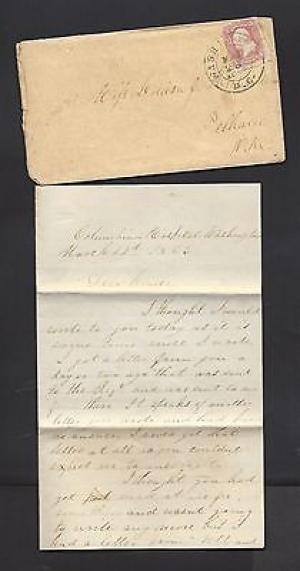 WASH
D.C.
Miss
Pelham
N.H.
Columbian Hospital Washington
March 1863
Dear
I thought I would
write to you today as it is
some time since I wrote
I got a letter from you a
day or two ago that was sent
to the Regt and was sent to me
there It speaks of another
letter you wrote and had
no answer I never got that
letter at all so you couldnt
expect me to
I thought you had
got mad at me for
and wasnt going
to write any more but I
had a letter from and